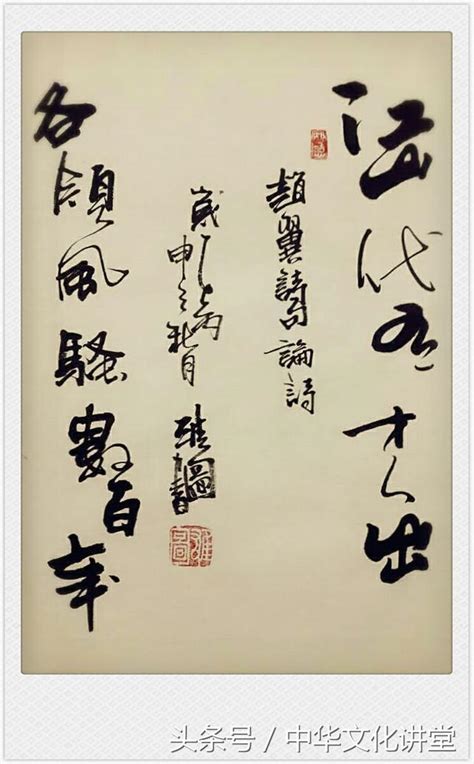 江山代有才人出
趙翼詩句論詩
歲次丙
申之秋月
各領風騷數百年
头条号 / 中华文化讲堂